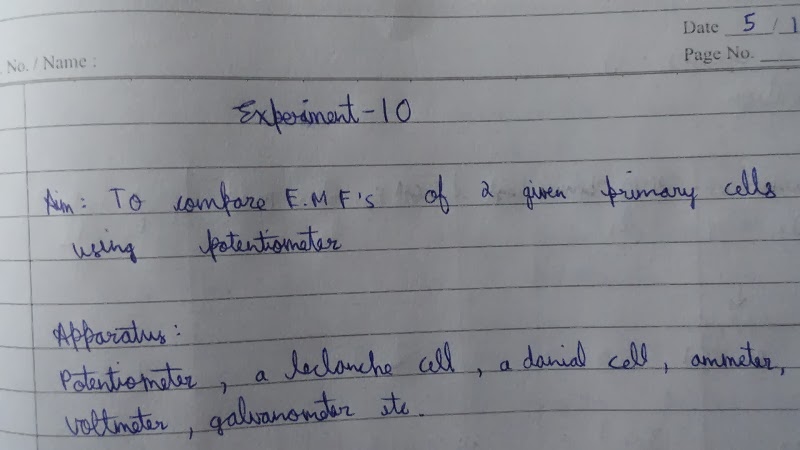 Date 5 / 1
Page No.
No. / Name :
Experiment - 10
Aim : To compare E.M.F's of 2 given primary cells
using potentiometer
Apparatus :
Potentiometer , a leclanche cell , a danial cell , ammeter,
voltmeter , galvanometer etc.